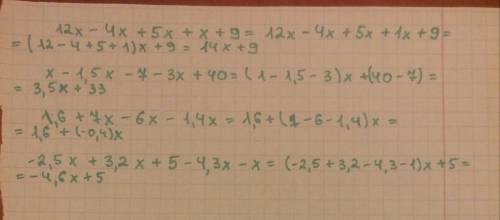 12x - 4x + 5x + x + 9 = 12x - 4x + 5x + 1x + 9 =
= (12 - 4 + 5 + 1)x + 9 = 14x + 9
x - 1,5x - 7 - 3x + 40 = (1 - 1,5 - 3)x + (40 - 7) =
= 3,5x + 33
1,6 + 7x - 6x - 1,4x = 1,6 + (7 - 6 - 1,4)x =
= 1,6 + (-0,4)x
-2,5x + 3,2x + 5 - 4,3x - x = (-2,5 + 3,2 - 4,3 - 1)x + 5 =
= -4,6x + 5